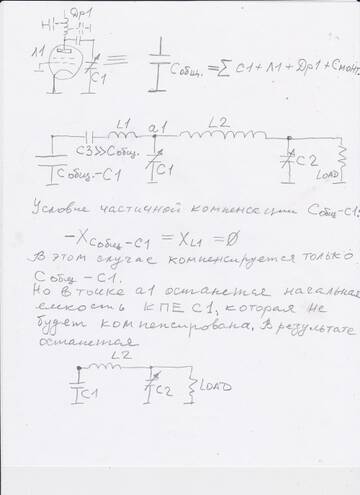 Др1
Н
Л1
С1
Собщ. = ∑ С1+Л1+Др1+Смонт
L1
а1
L2
С3>>Собщ.
С1
С2
LOAD
Собщ.-С1
Условие частичной компенсации Собщ-С1:
-XCобщ-С1 = XL1 = 0
В этом случае компенсируется только
Собщ-С1.
Но в точке а1 останется начальная
емкость КПЕ С1, которая не
будет компенсирована. В результате
останется
L2
С1
С2
LOAD